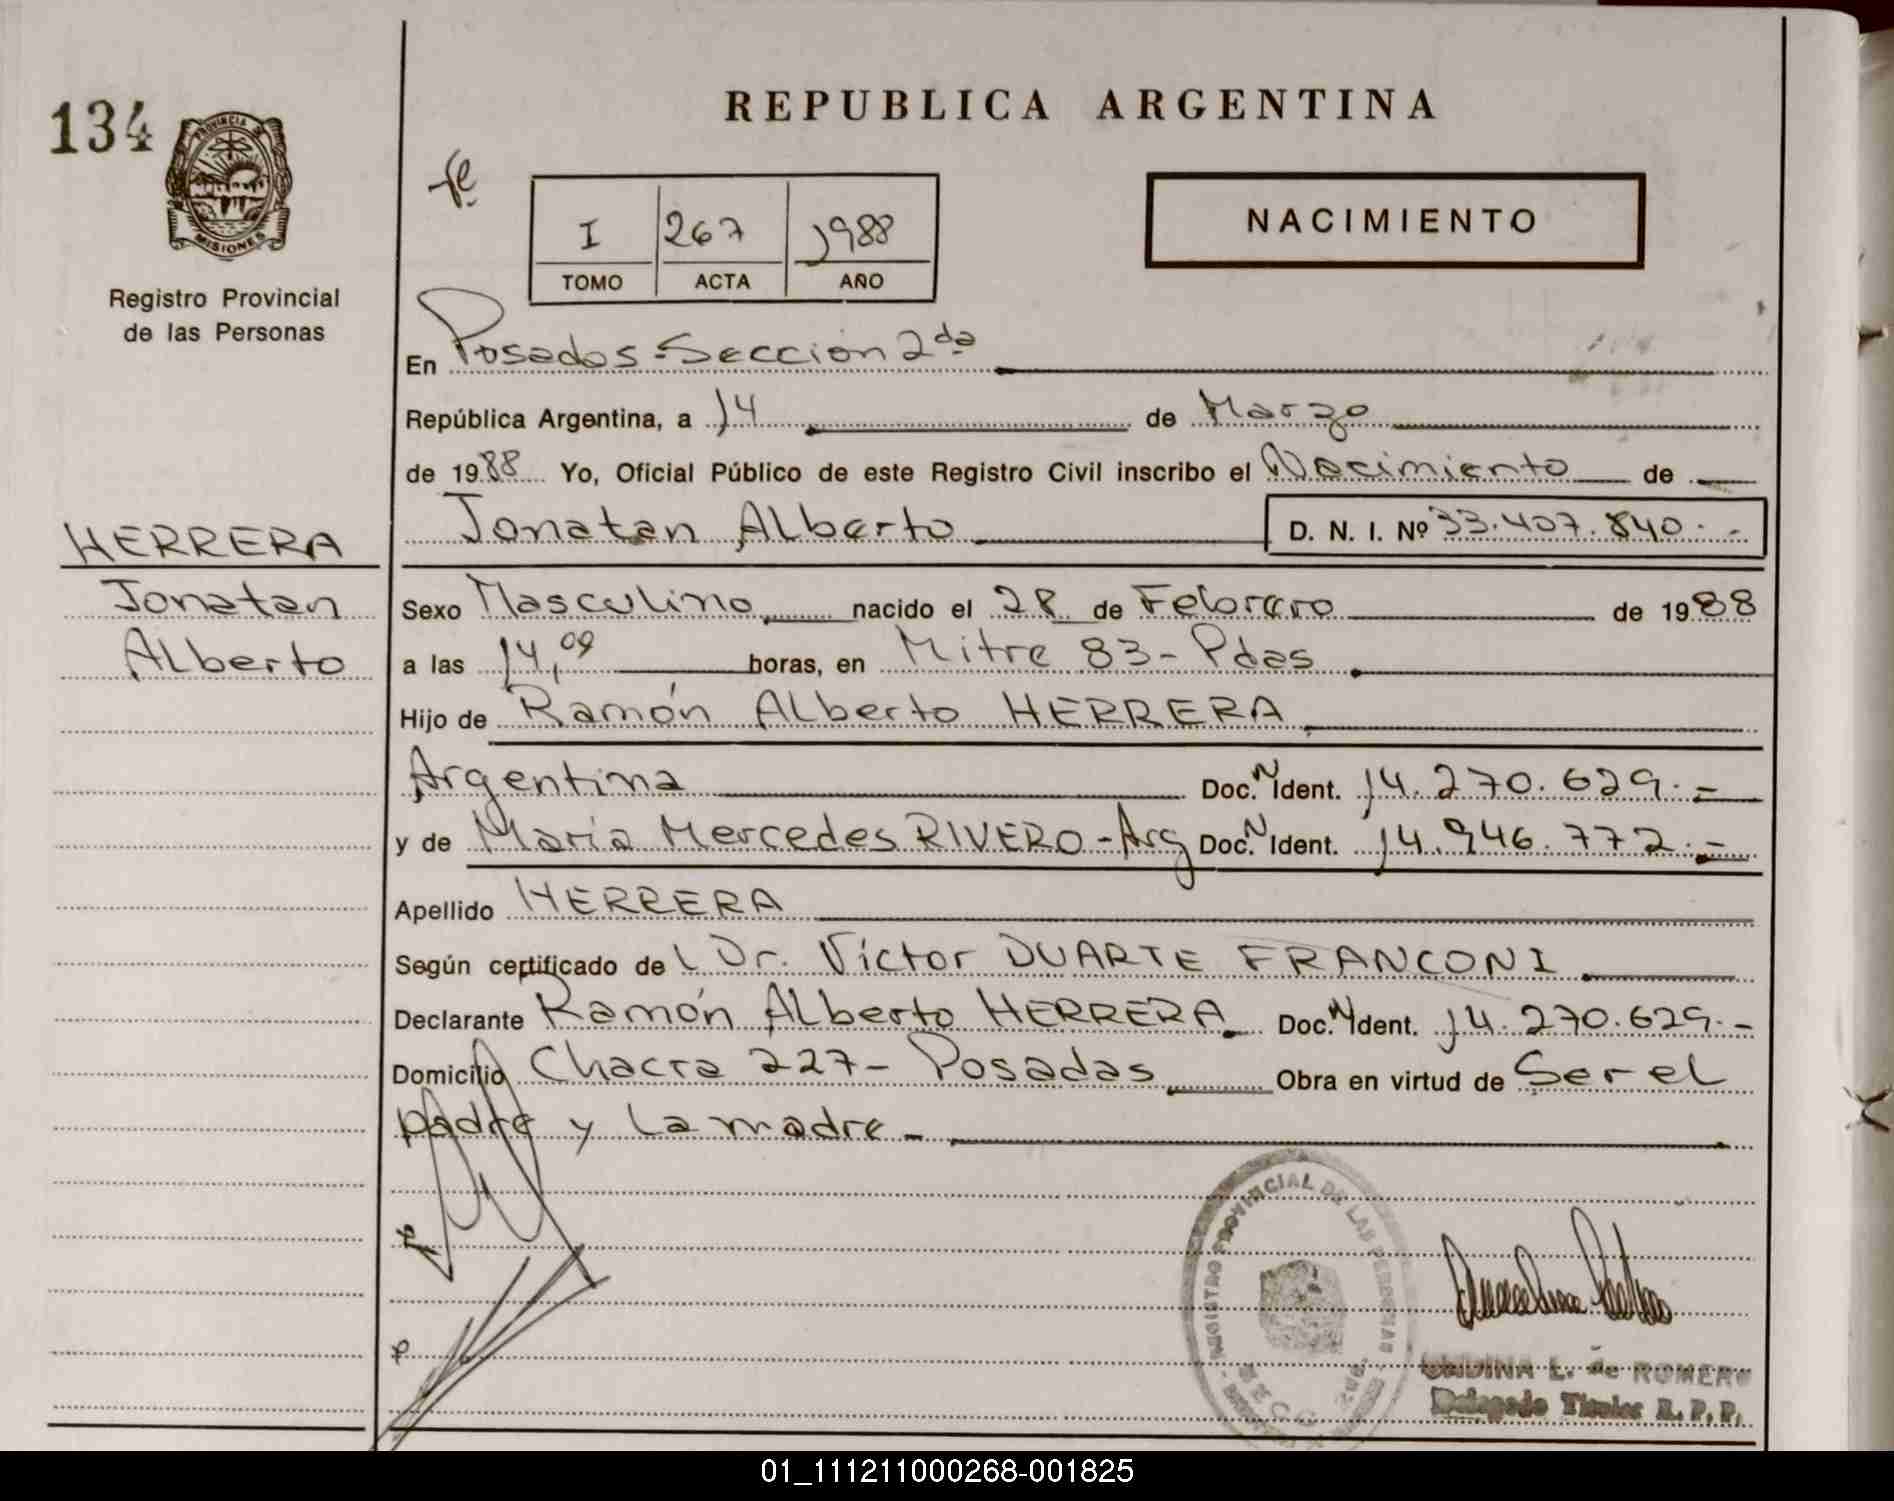 134
PROVINCIA DE
MISIONES
Registro Provincial
de las Personas
HERRERA
Jonatan
Alberto
REPUBLICA ARGENTINA
I 267 1988
TOMO ACTA AÑO
NACIMIENTO
En Posadas-Seccion 2da
República Argentina, a 14 de Marzo
de 1988 Yo, Oficial Público de este Registro Civil inscribo el Nacimiento de
Jonatan Alberto D. N. I. Nº 33.407.840.-
Sexo Masculino nacido el 28 de Febrero de 1988
a las 14,09 horas, en Mitre 83-Pdas
Hijo de Ramón Alberto HERRERA
Argentina Doc. N Ident. 14.270.629.-
y de María Mercedes RIVERO-Arg Doc. N Ident. 14.946.772.-
Apellido HERRERA
Según certificado de l Dr. Víctor DUARTE FRANCONI
Declarante Ramón Alberto HERRERA Doc. N Ident. 14.270.629.-
Domicilio Chacra 227- Posadas Obra en virtud de Ser el
padre y la madre -
REGISTRO PROVINCIAL DE LAS PERSONAS
SECC 2da
ONDINA L. de ROMERO
Delegado Titular R. P. P.
01_111211000268-001825